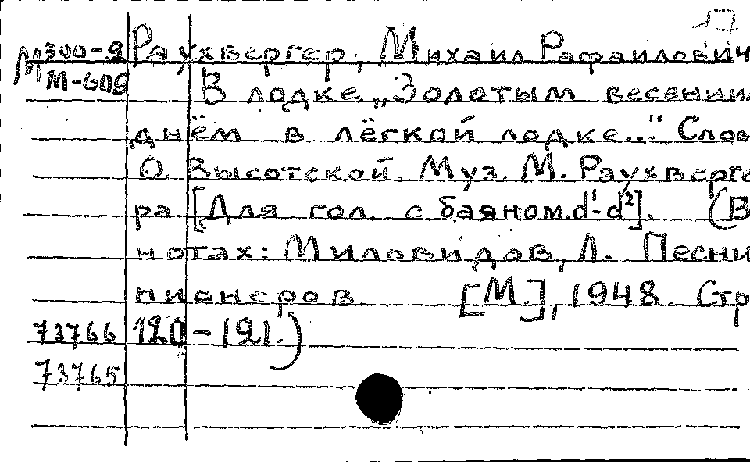 17
М300-2 Раухвергер, Михаил Рафаилович
М-609 В лодке „Золотым весенним
днём в лёгкой лодке..." Слов
О. Высотской. Муз. М. Раухверге
ра [Для гол. с баяном. d¹-d²]. (В
нотах: Миловидов, Л. Песни
пионеров. [М], 1948. Стр
73766 120-121.)
73765